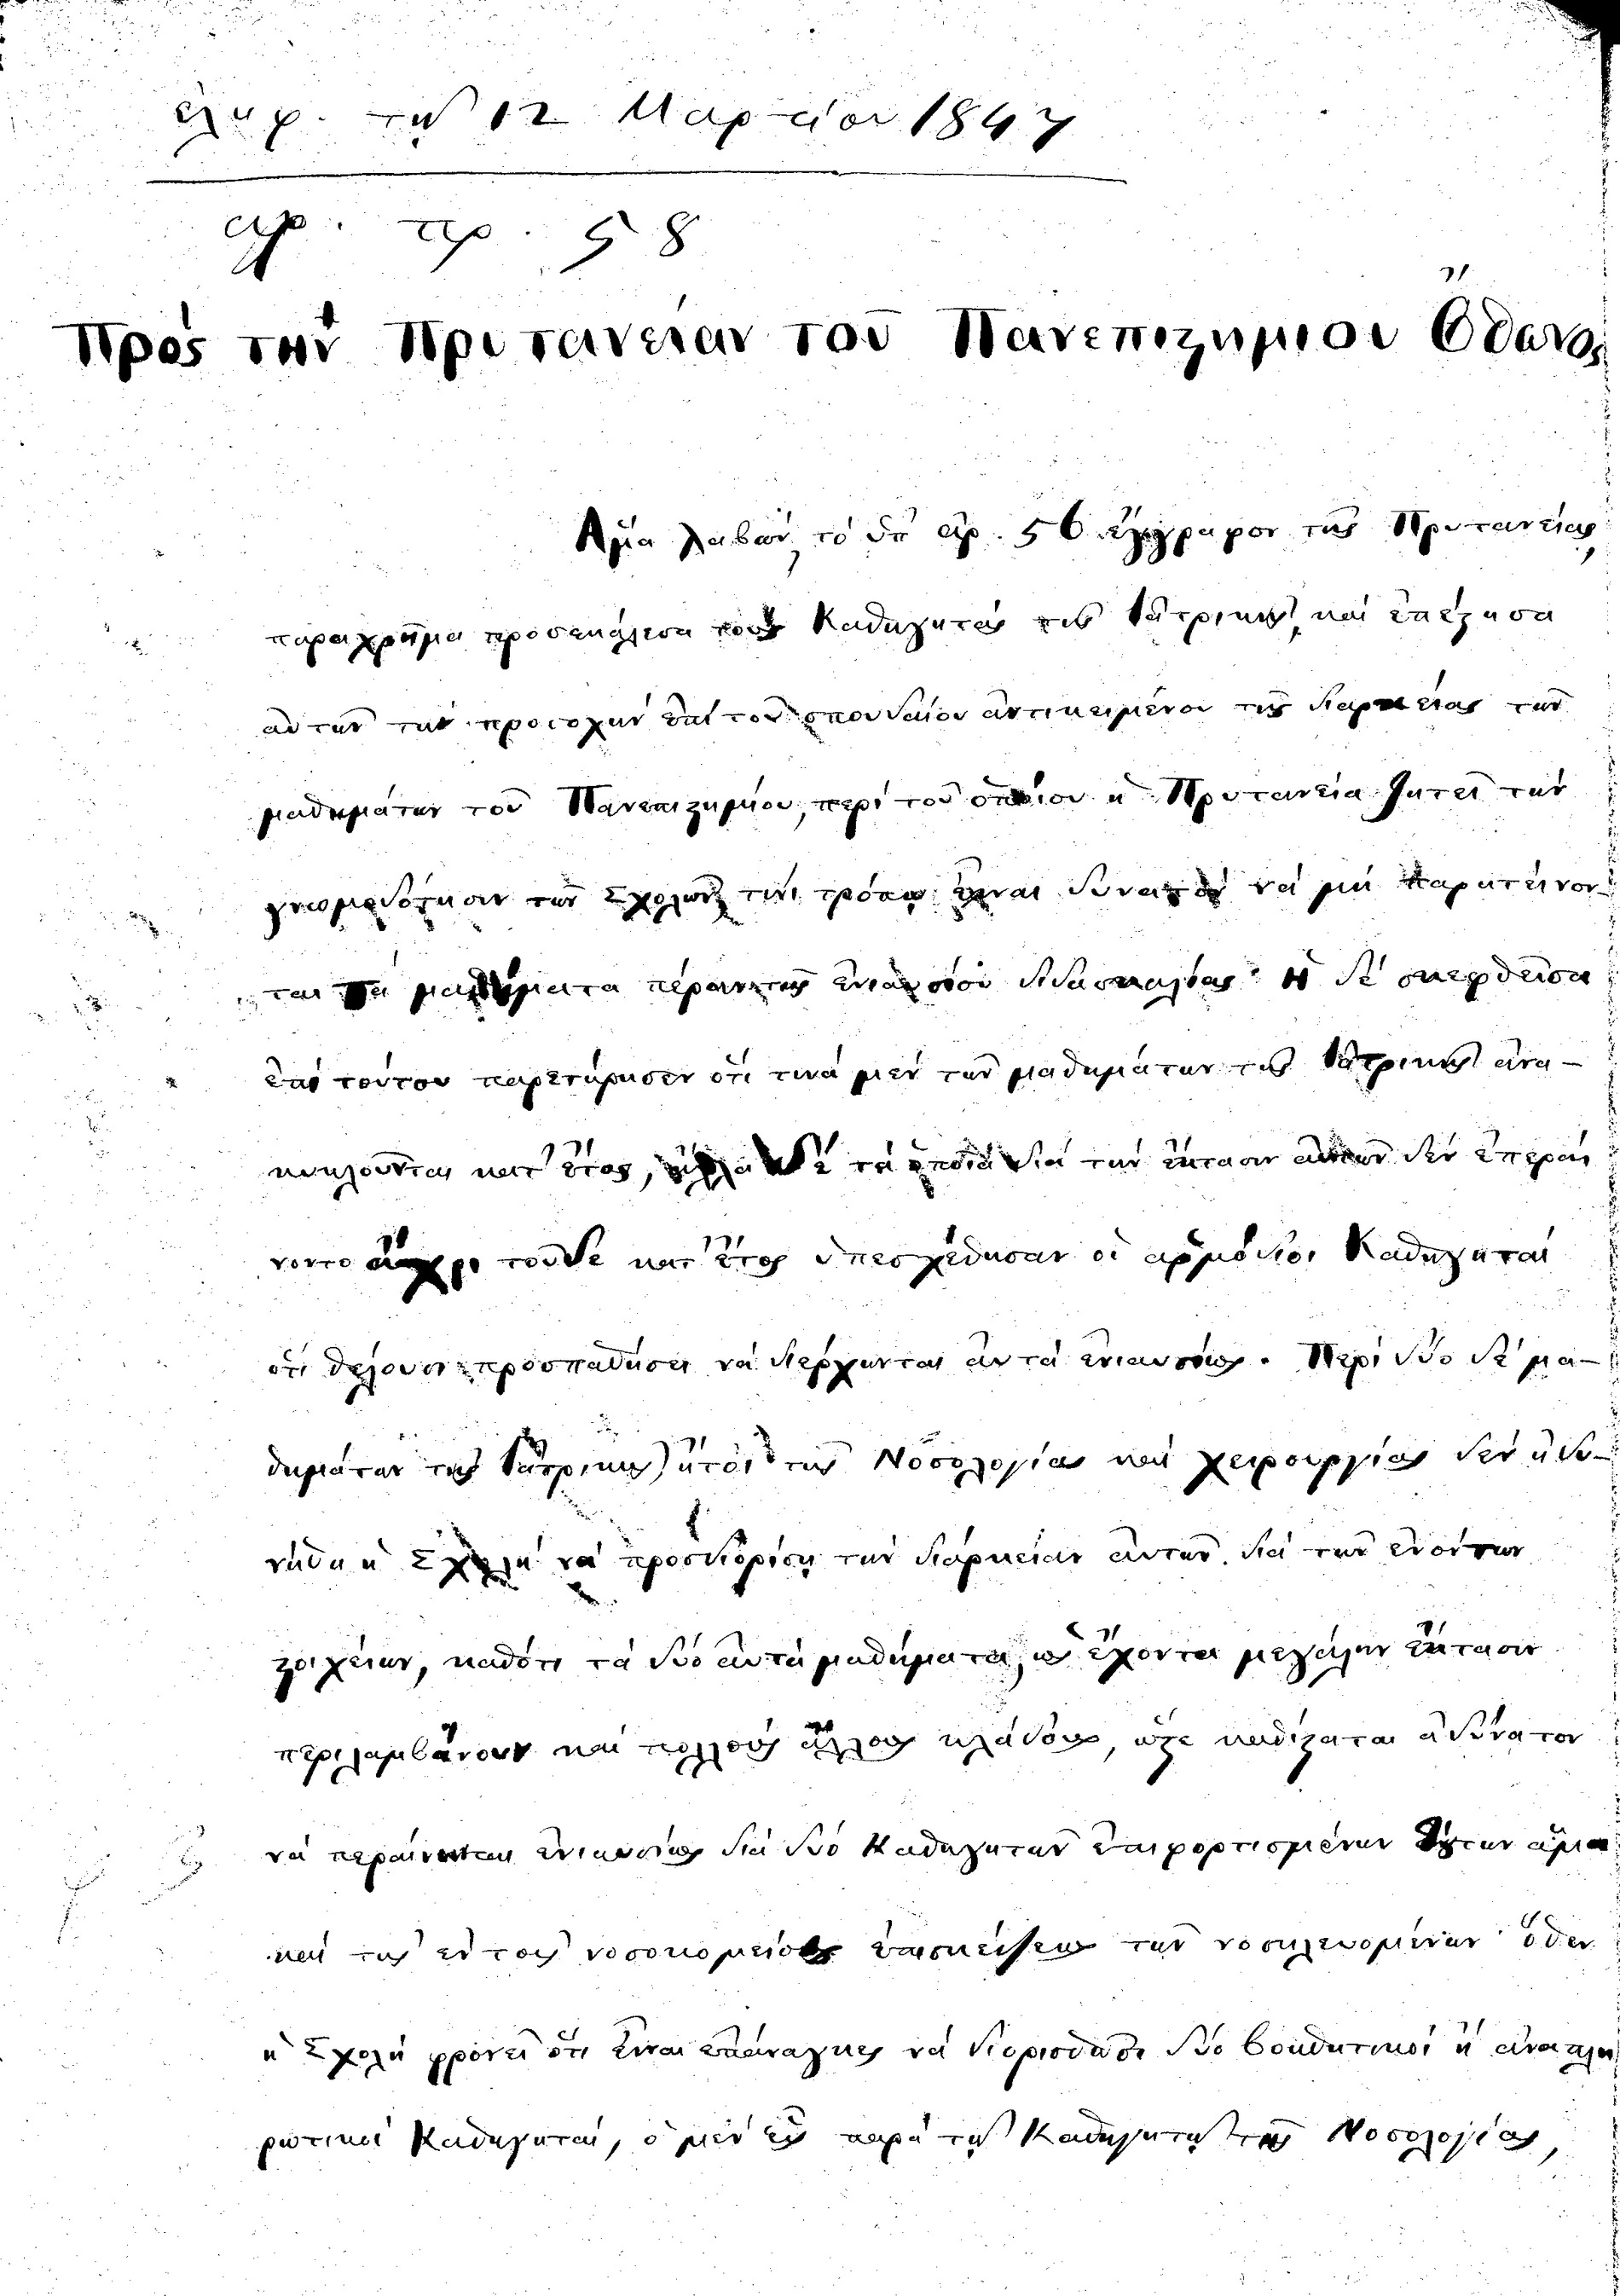 ἐλήφ. τῇ 12 Μαρτίου 1847
ἀρ. πρ. 58
Πρὸς τὴν Πρυτανείαν τοῦ Πανεπιστημίου Ὄθωνος
Ἅμα λαβὼν τὸ ὑπ' ἀρ. 56 ἔγγραφον τῆς Πρυτανείας,
παραχρῆμα προσεκάλεσα τοὺς Καθηγητὰς τῆς Ἰατρικῆς, καὶ ἐπέστησα
αὐτῶν τὴν προσοχὴν ἐπὶ τοῦ σπουδαίου ἀντικειμένου τῆς διαρκείας τῶν
μαθημάτων τοῦ Πανεπιστημίου, περὶ τοῦ ὁποίου ἡ Πρυτανεία ζητεῖ τὴν
γνωμοδότησιν τῶν Σχολῶν τίνι τρόπῳ εἶναι δυνατὸν νὰ μὴ παρατείνον-
ται τὰ μαθήματα πέραν τῆς ἐνιαυσίου διδασκαλίας· ἡ δὲ σκεφθεῖσα
ἐπὶ τούτου παρετήρησεν ὅτι τινὰ μὲν τῶν μαθημάτων τῆς Ἰατρικῆς ἀνα-
κυκλοῦνται κατ' ἔτος, ἄλλα δὲ τὰ ὁποῖα διὰ τὴν ἔκτασιν αὐτῶν δὲν ἐπεραί
νοντο ἄχρι τοῦδε κατ' ἔτος ὑπεσχέθησαν οἱ ἁρμόδιοι Καθηγηταὶ
ὅτι θέλουσι προσπαθήσει νὰ διέρχωνται αὐτὰ ἐνιαυσίως. Περὶ δύο δὲ μα-
θημάτων τῆς Ἰατρικῆς ἤτοι τῆς Νοσολογίας καὶ χειρουργίας δὲν ἠδυ-
νήθη ἡ Σχολὴ νὰ προσδιορίσῃ τὴν διάρκειαν αὐτῶν διὰ τῶν ἐνόντων
στοιχείων, καθότι τὰ δύο αὐτὰ μαθήματα, ὡς ἔχοντα μεγάλην ἔκτασιν
περιλαμβάνουν καὶ πολλοὺς ἄλλους κλάδους, ὥστε καθίσταται ἀδύνατον
νὰ περαίνωνται ἐνιαυσίως διὰ δύο Καθηγητῶν ἐπιφορτισμένων ὄντων ἅμα
καὶ τῆς ἐν τοῖς νοσοκομείοις ἐπισκέψεως τῶν νοσηλευομένων ὅθεν
ἡ Σχολὴ φρονεῖ ὅτι εἶναι ἐπάναγκες νὰ διορισθῶσι δύο βοηθητικοὶ ἢ ἀναπλη
ρωτικοὶ Καθηγηταί, ὁ μὲν εἷς παρὰ τῷ Καθηγητῇ τῆς Νοσολογίας,